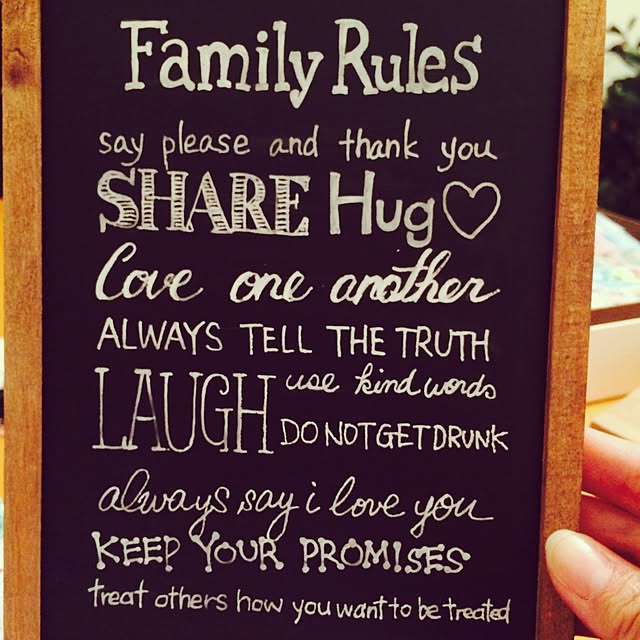 Family Rules
say please and thank you
SHARE Hug♡
Love one another
ALWAYS TELL THE TRUTH
LAUGH use kind words
DO NOT GET DRUNK
always say i love you
KEEP YOUR PROMISES
treat others how you want to be treated